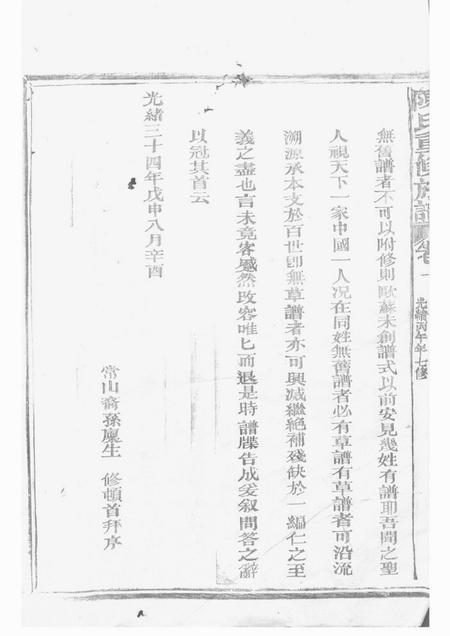 陳氏重修族譜 卷一 光緒丙午年七修
無舊譜者不可以附修則歐蘇未創譜式以前安見幾姓有譜耶吾聞之聖
人視天下一家中國一人况在同姓無舊譜者必有草譜有草譜者可沿流
溯源承本支於百世即無草譜者亦可興滅繼絕補殘缺於一編仁之至
義之盡也言未竟客蹙然改容唯匕而退是時譜牒告成爰叙問答之辭
以冠其首云
光緒三十四年戊申八月辛酉
常山裔孫廩生 修頓首拜序